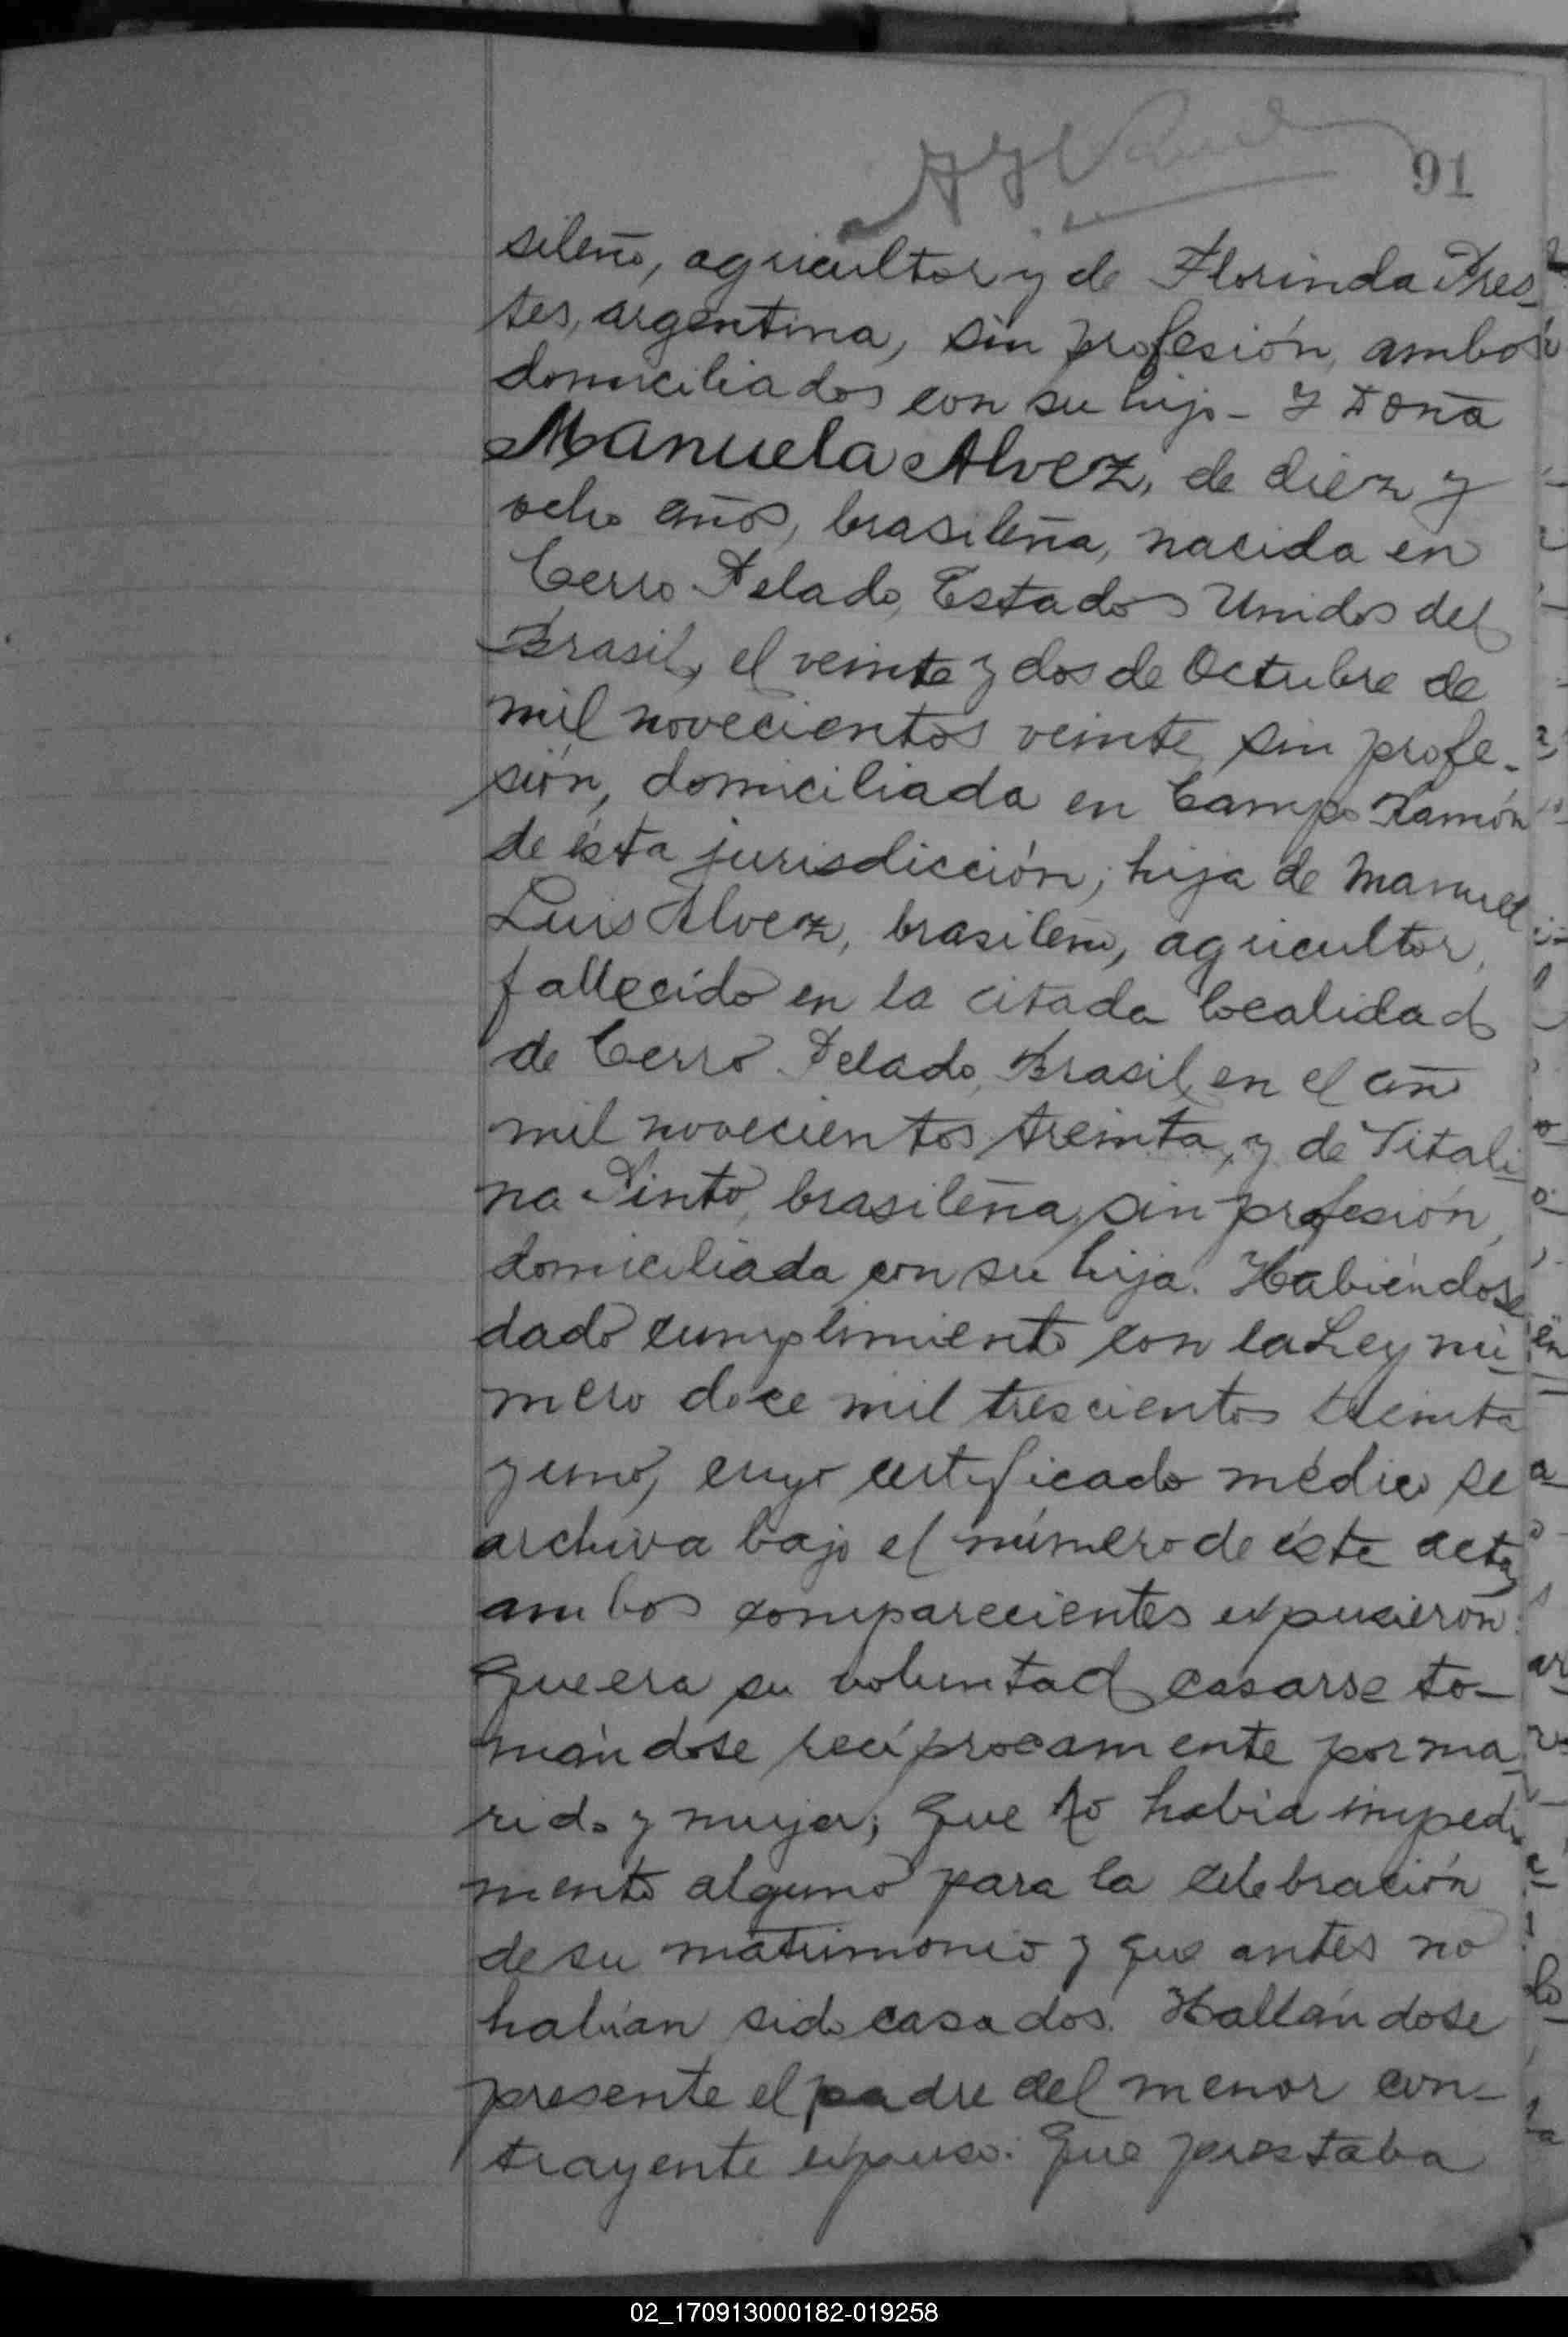 91
sileño, agricultor y de Florinda Pres-
tes, argentina, sin profesión, ambos
domiciliados con su hijo - Y Doña
Manuela Alvez, de diez y
ocho años, brasileña, nacida en
Cerro Pelado, Estados Unidos del
Brasil, el veinte y dos de Octubre de
mil novecientos veinte, sin profe-
sión, domiciliada en Campo Ramón
de ésta jurisdicción; hija de Manuel
Luis Alvez, brasileño, agricultor,
fallecido en la citada localidad
de Cerro Pelado, Brasil, en el año
mil novecientos treinta, y de Vitali-
na Pinto, brasileña, sin profesión,
domiciliada con su hija. Habiéndose
dado cumplimiento con la Ley nú-
mero doce mil trescientos treinta
y uno, cuyo certificado médico se
archiva bajo el número de éste acta,
ambos comparecientes expusieron:
Que era su voluntad casarse to-
mándose recíprocamente por ma-
rido y mujer; que no había impedi-
mento alguno para la celebración
de su matrimonio y que antes no
habían sido casados. Hallándose
presente el padre del menor con-
trayente expuso: Que prestaba
02_170913000182-019258